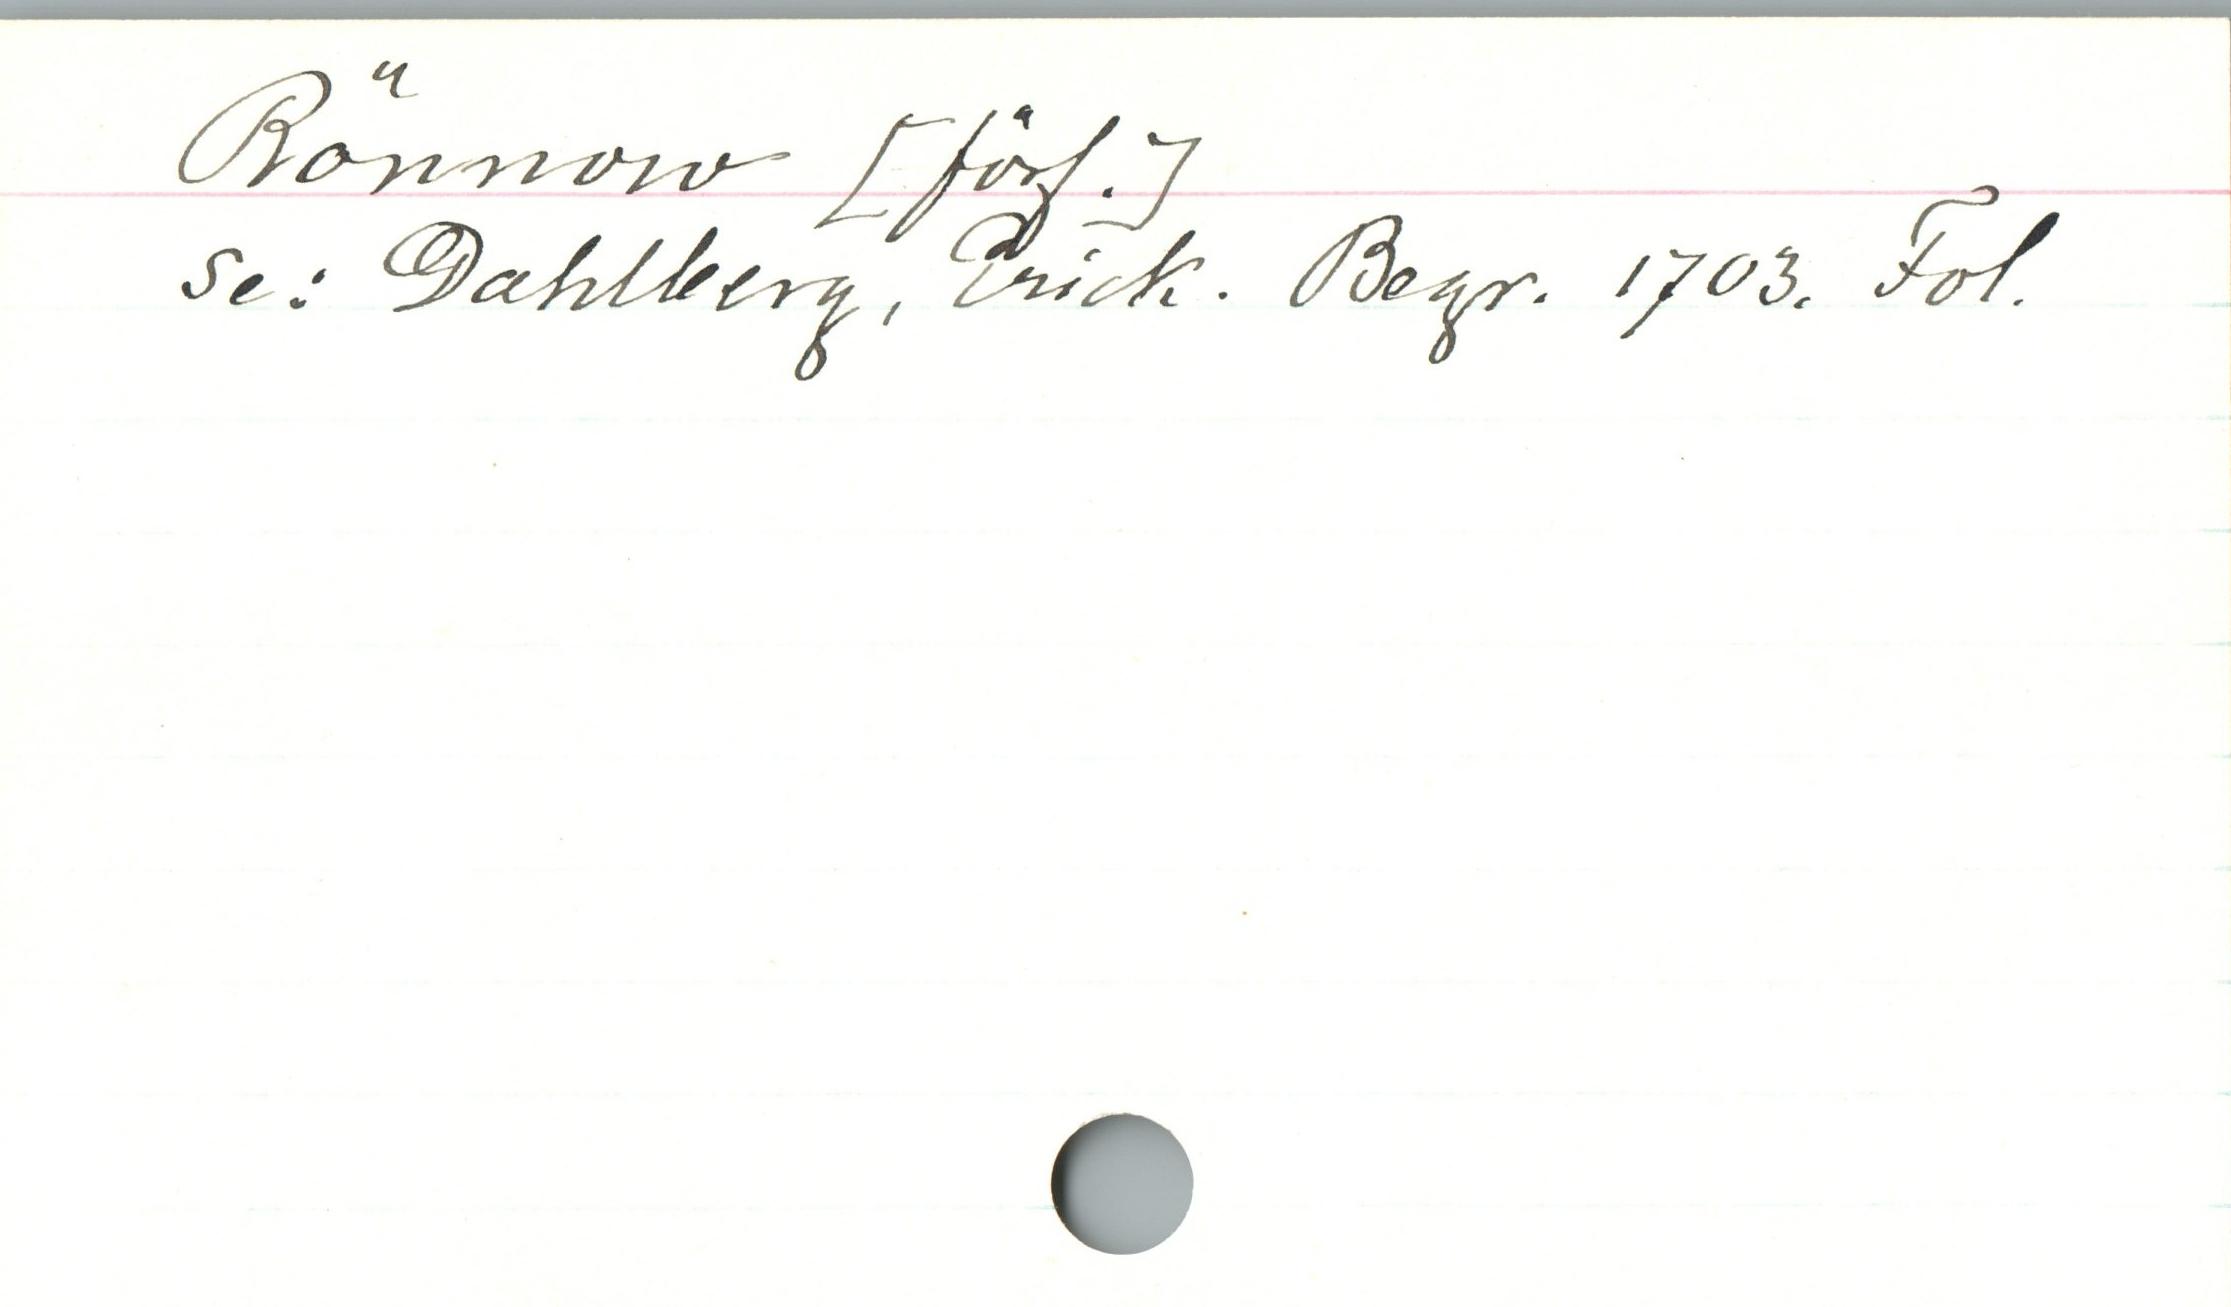 Rönnow [förf.]
se: Dahlberg, Erick. Begr. 1703. Fol.